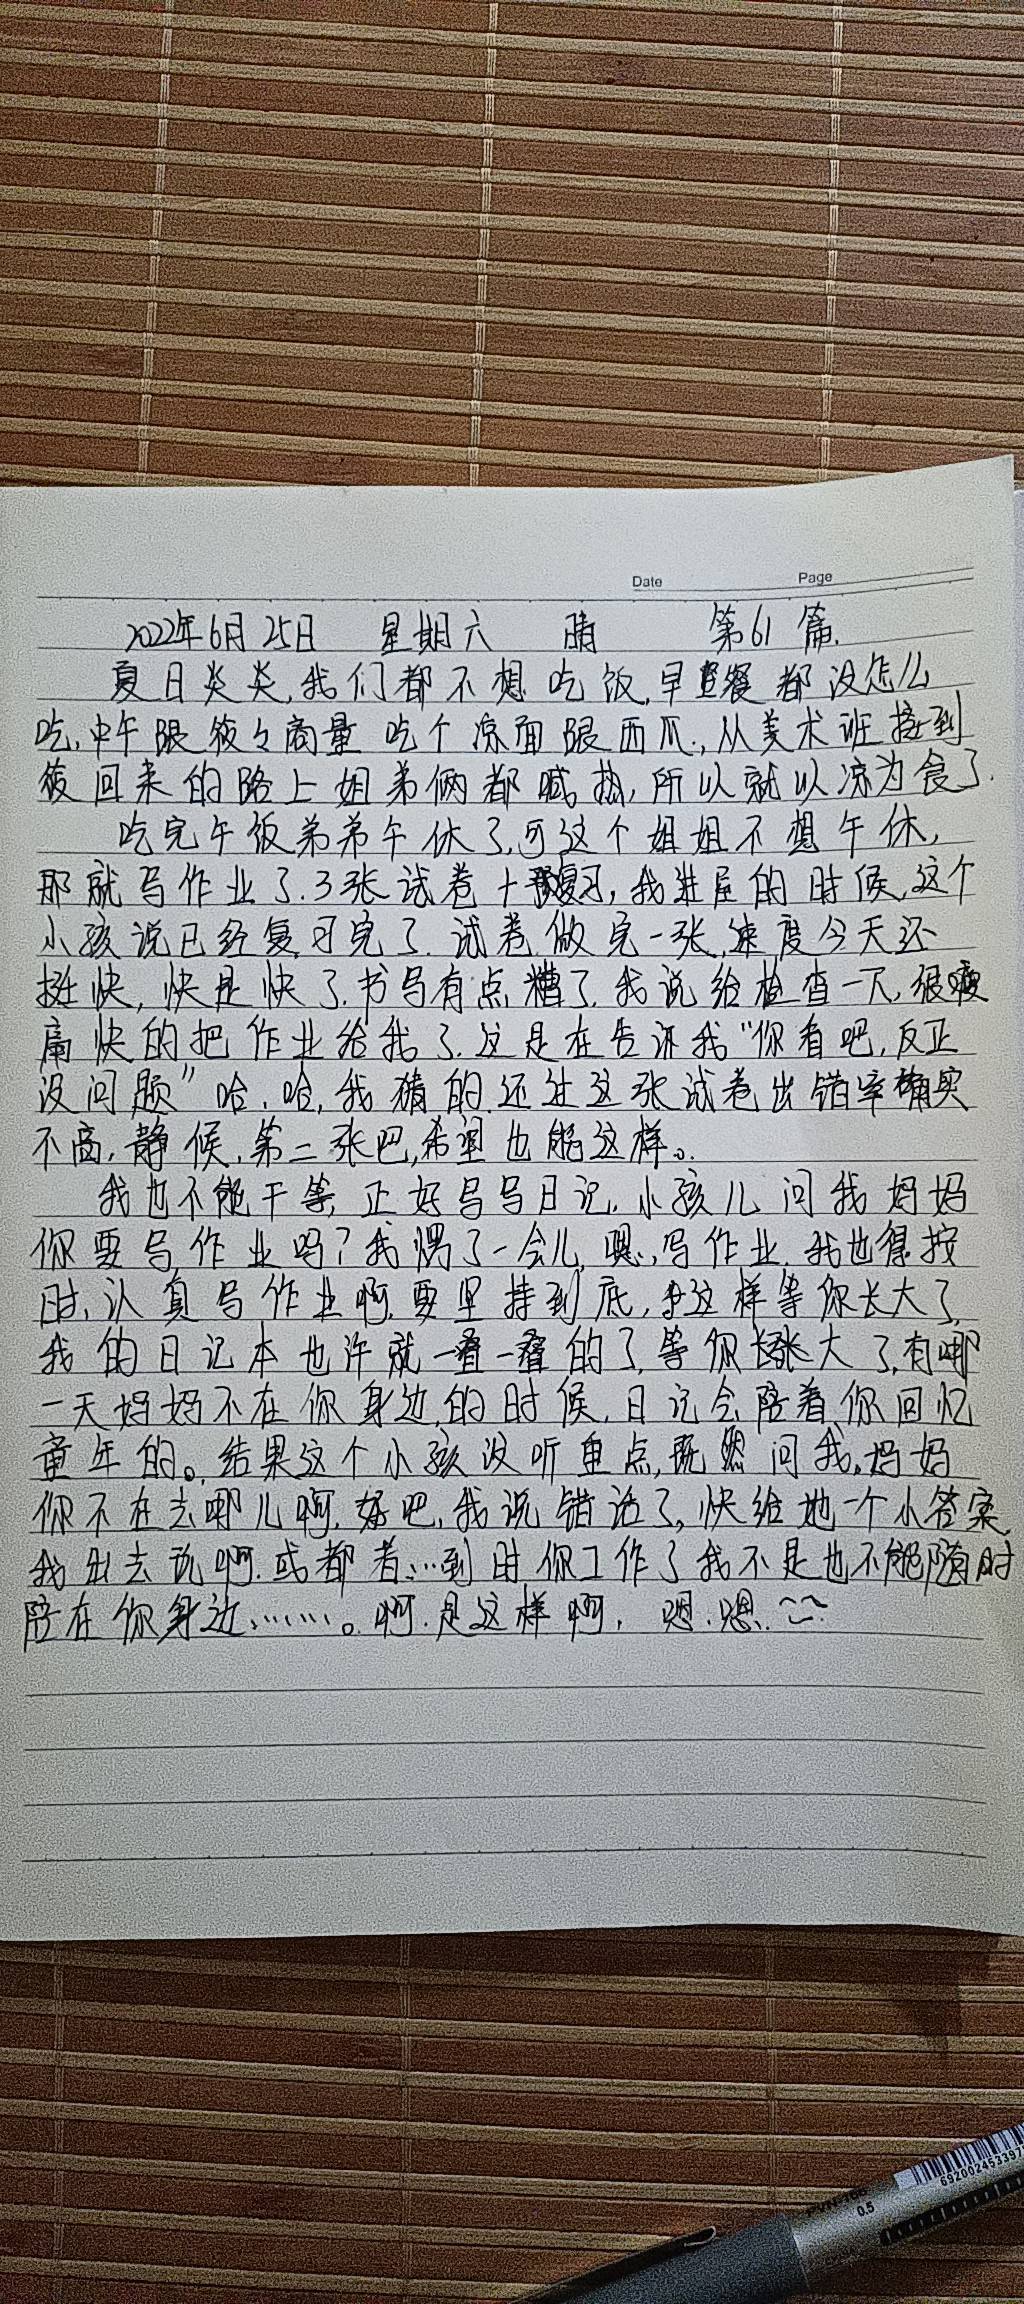 Date Page
2022年6月25日 星期六 晴 第61篇.
夏日炎炎,我们都不想吃饭,早餐都没怎么
吃,中午跟筱々商量吃个凉面跟西瓜.,从美术班接到
筱回来的路上姐弟俩都喊热,所以就以凉为食了.
吃完午饭弟弟午休了,可这个姐姐不想午休,
那就写作业了.3张试卷+复习,我进屋的时候,这个
小孩说已经复习完了.试卷做完一张,速度今天还
挺快,快是快了.书写有点糟了.我说给检查一下,很
痛快的把作业给我了.这是在告诉我“你看吧,反正
没问题”哈.哈,我猜的.还过这张试卷出错率确实
不高,静候,第二张吧,希望也能这样。
我也不能干等,正好写写日记.小孩儿问我妈妈
你要写作业吗?我愣了一会儿,嗯,写作业.我也得按
时、认真写作业啊.要坚持到底,这样等你长大了,
我的日记本也许就一叠一叠的了,等你长大了,有哪
一天妈妈不在你身边,的时候,日记会陪着你回忆
童年的。结果这个小孩没听重点,既然问我,妈妈
你不在去哪儿啊.好吧,我说错话了,快给她一个小答案,
我出去玩啊.或都者……到时你工作了我不是也不能随时
陪在你身边………。啊.是这样啊,嗯.嗯.~~
PVN-166
0.5
6920024533971